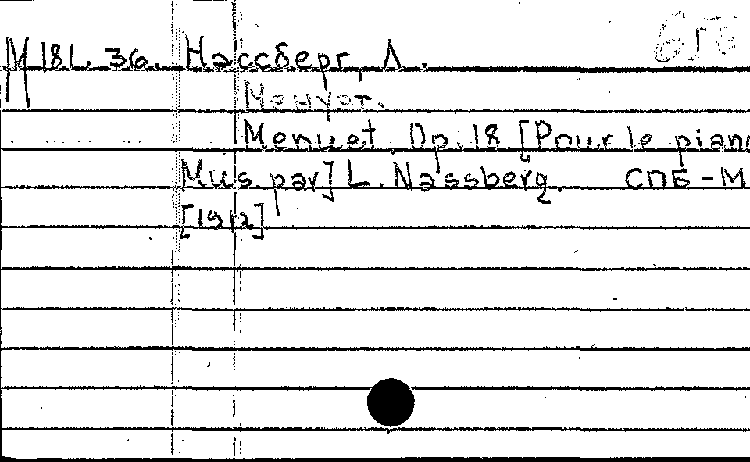 М 181.36. Нассберг, Л.
Менуэт.
Menuet. Op. 18 [Pour le piano
Mus. par] L. Nassberg. СПБ - М
[1912]